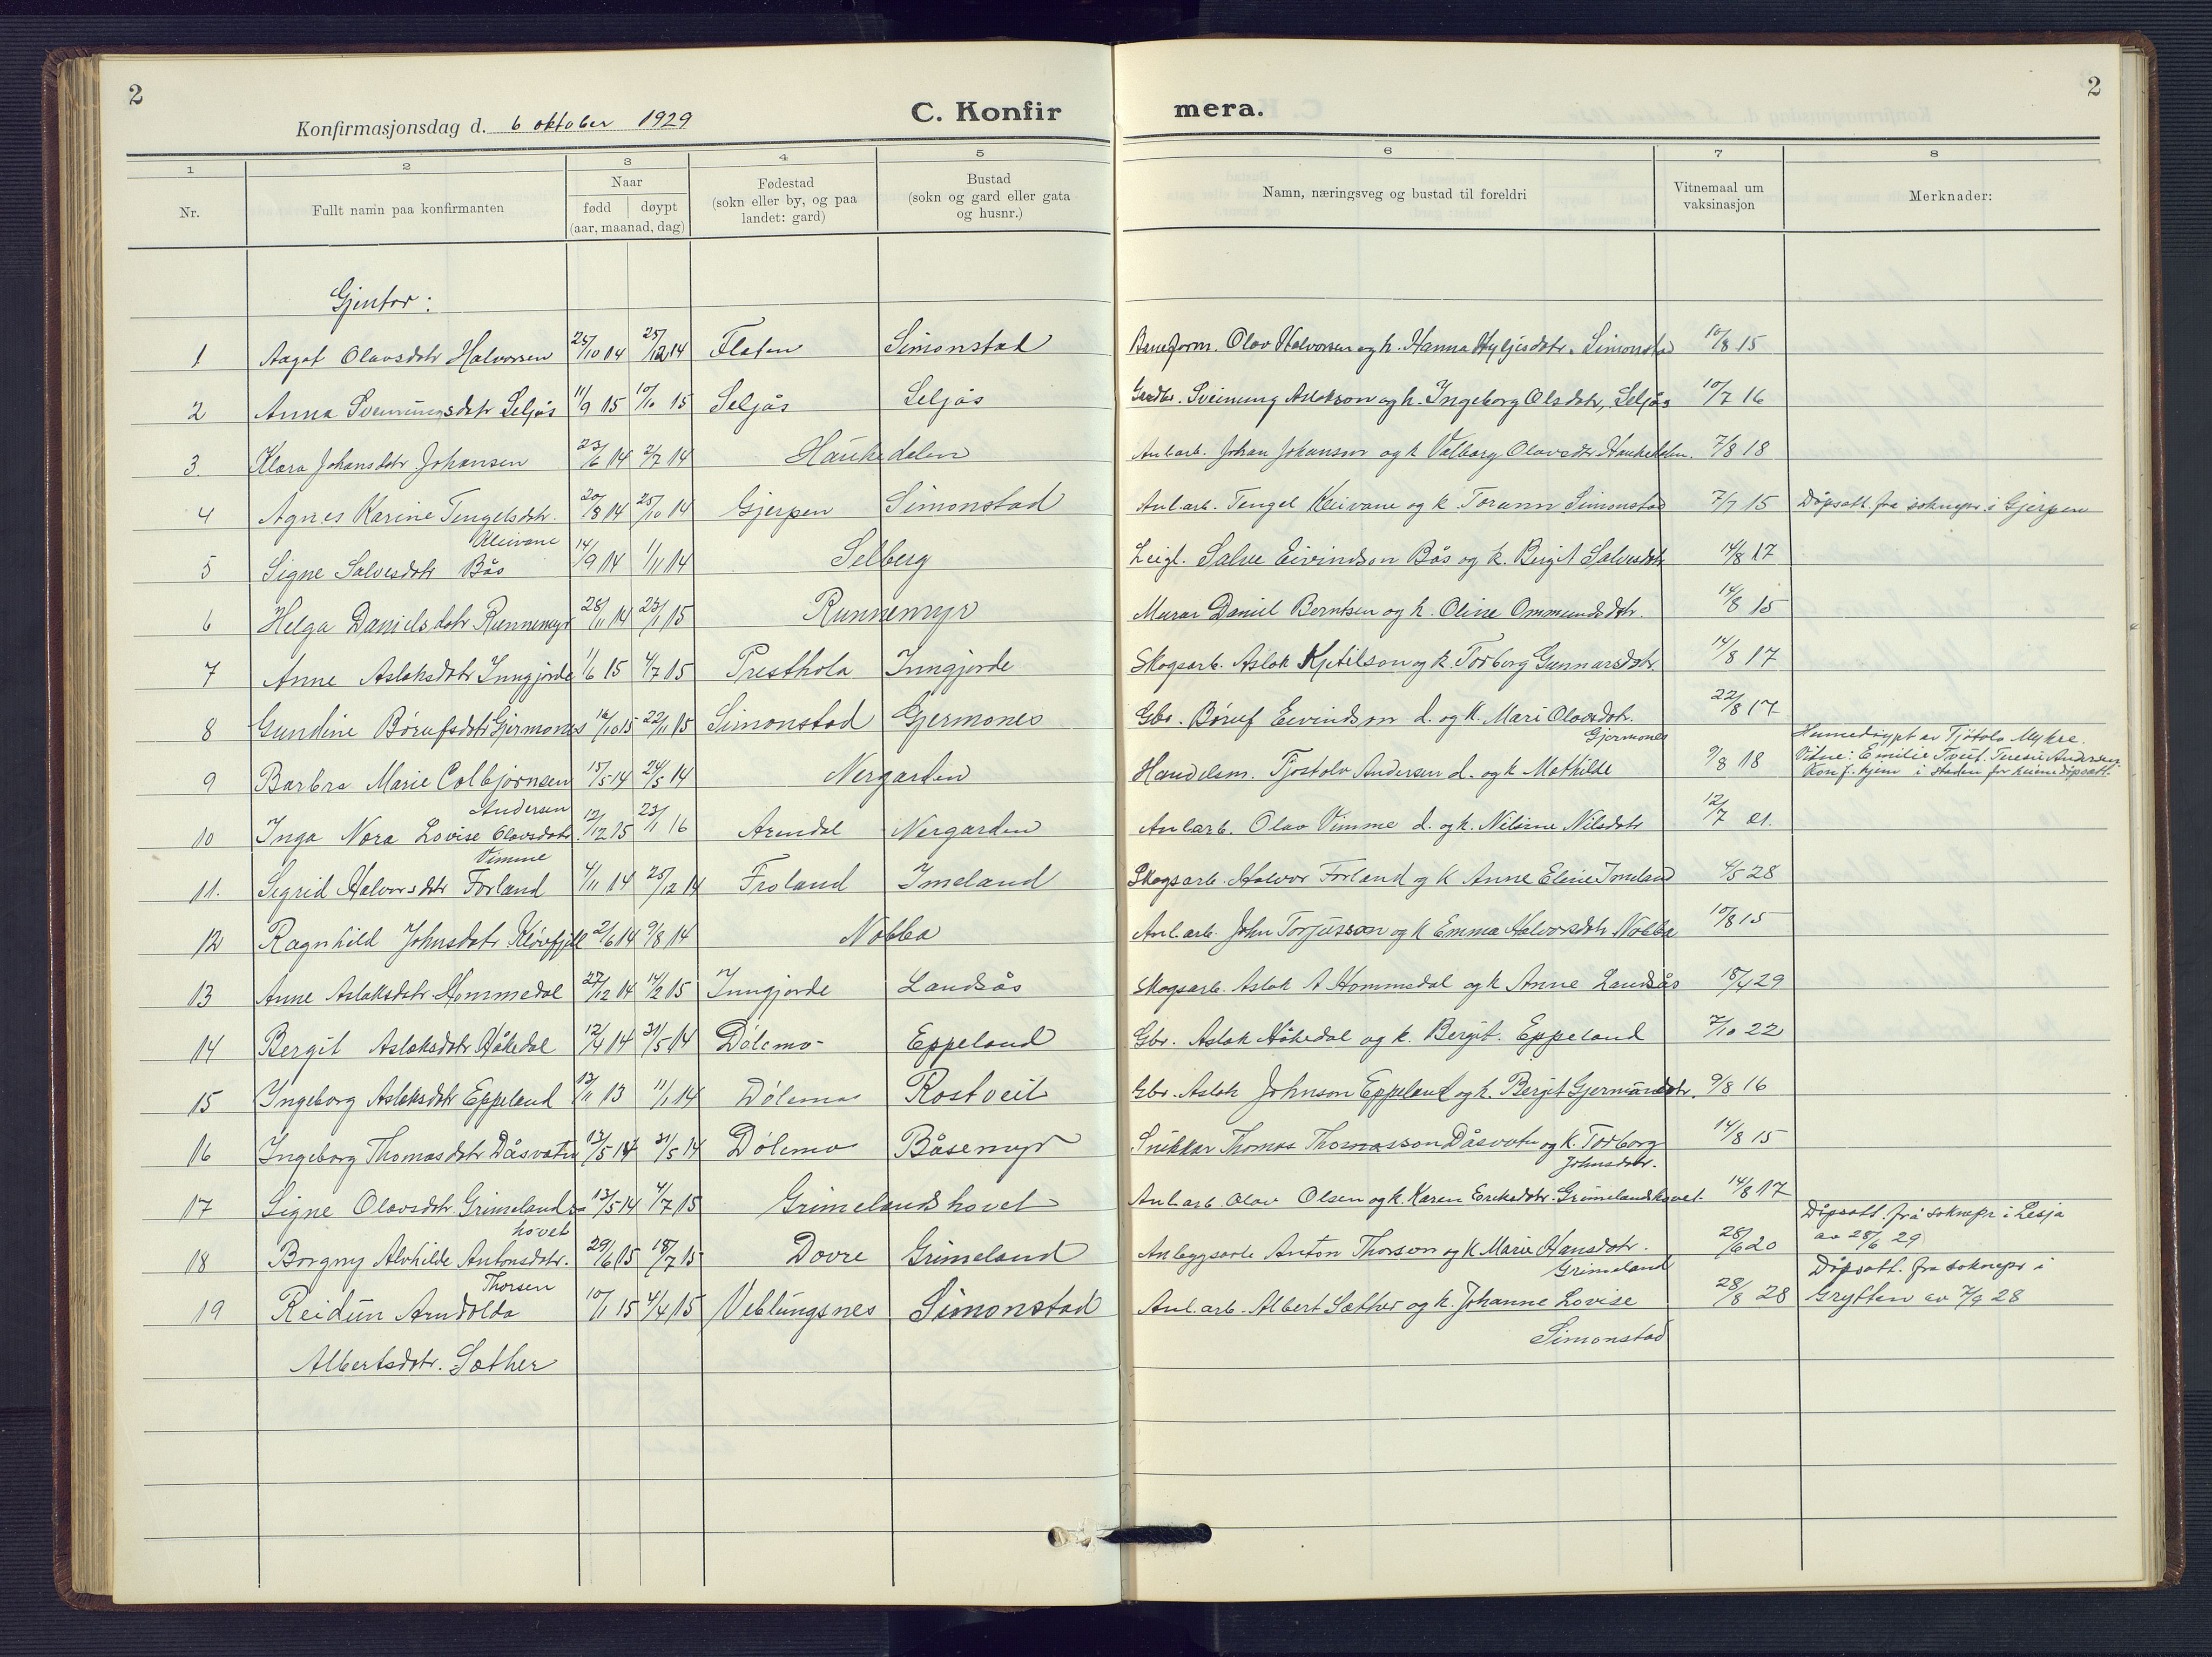 2
2
Konfirmasjonsdag d. 6 oktober 1929
C. Konfir mera.
1 2 3 4 5 6 7 8
Nr.
Fullt namn paa konfirmanten
Naar
født | døypt
(aar, maanad, dag)
Fødestad
(sokn eller by, og paa
landet: gard)
Bustad
(sokn og gard eller gata
og husnr.)
Namn, næringsveg og bustad til foreldri
Vitnemaal um
vaksinasjon
Merknader:
Gjentor:
1 Aagot Olavsdotr Halvorsen 25/10 14 25/12 14 Flaten Simonstad Baneform. Olav Halvorsen og k. Hanna Simonstad 10/8 15
2 Anna Sveinungsdotr Seljås 11/9 15 10/10 15 Seljås Seljås Gardbr. Sveinung Aslakson og k. Ingeborg Olsdotr, Seljås 10/7 16
3 Klara Johansdotr Johansen 23/6 14 2/7 14 Haukedalen Anl.arb. Johan Johanson og k Valborg Olavsdtr Haukedalen. 7/8 18
4 Agnes Karine Tengelsdotr. 20/8 14 25/10 14 Gjerpen Simonstad Anl.arb. Tengel Kleivane og k. Torunn Simonstad 7/7 15 Døpsatt. fra soknepr. i Gjerpen
Kleivane
5 Signe Salvesdotr Bås 14/9 14 1/11 14 Selberg Leigl. Salve Eivindson Bås og k. Birgit Salvesdotr 14/8 17
6 Helga Danielsdotr Runnemyr 28/11 14 23/1 15 Runnemyr Murar Daniel Berntsen og k. Oline Ommundsdotr. 14/8 15
7 Anne Aslaksdotr Inngjorde 1/6 15 4/7 15 Presthola Inngjorde Skogsarb. Aslak Kjetilson og k. Torborg Gunnarsdotr. 14/8 17
8 Gundine Børufsdotr Gjermones 16/10 15 22/11 15 Simonstad Gjermones Gbr. Børuf Eivindson d. og k. Mari Olavsdotr. 22/8 17
Gjermones
9 Barbra Marie Colbjørnsen 15/5 14 24/5 14 Nergarden Handelsm. Tjostolv Andersen d. og k Mathilde 9/8 18
Andersen
Heimedøypt av Tjøtolv Mykre.
Vitne: Emilie Tveit. Teresie Andersen.
Konf. kjem i staden for heimedøpsatt.
10 Inga Nora Lovise Olavsdotr. 12/12 15 23/11 16 Arendal Nergarden Anl.arb. Olav Vimme d. og k. Nilsine Nilsdotr 12/7 21.
Vimme
11. Sigrid Halvorsdotr Forland 4/11 14 25/12 14 Froland Imeland Skogsarb. Halvor Forland og k Anne Eline Imeland 4/5 28
12 Ragnhild Johnsdotr Kløvfjell 2/6 14 9/8 14 Nabba Anl.arb. John Torjusson og k Emma Halvorsdotr Nabba 10/8 15
13 Anne Aslaksdotr Hommedal 27/12 14 14/2 15 Inngjorde Landsås Skogsarb. Aslak A Hommedal og k Anne Landsås 18/4 29
14 Bergit Aslaksdotr Håkedal 12/4 14 31/5 14 Dølemo Eppeland Gbr. Aslak Håkedal og k. Bergit. Eppeland 7/10 22
15 Ingeborg Aslaksdotr Eppeland 13/11 13 11/1 14 Dølemo Rostveit Gbr. Aslak Johnson Eppeland og k. Bergit Gjermundsdotr. 9/8 16
16 Ingeborg Thomasdotr Dåsvatn 13/5 14 31/5 14 Dølemo Båsemyr Snikkar Thomas Thomasson Dåsvatn og k. Torborg 14/8 15
Johnsdotr.
17 Signe Olavsdotr Grimelands- 13/5 14 4/7 15 Grimelandshovet Anl.arb. Olav Olsen og k. Karen Eriksdotr. Grimelandshovet. 14/8 17
hovet
18 Borgny Alvhilde Antonsdotr. 29/6 15 18/7 15 Dovre Grimeland Anleggsarb Anton Thorson og k Marie Hansdotr. 28/6 20
Thorsen
Grimeland
Døpsatt. frå soknepr i Lesja
av 28/6 29
19 Reidun Arndolda 10/1 15 4/4 15 Veblungsnes Simonstad Anl.arb. Albert Sæther og k. Johanne Lovise 28/8 28
Døpsatt. fra soknepr i
Grytten av 7/9 28
Albertsdotr. Sæther
Simonstad